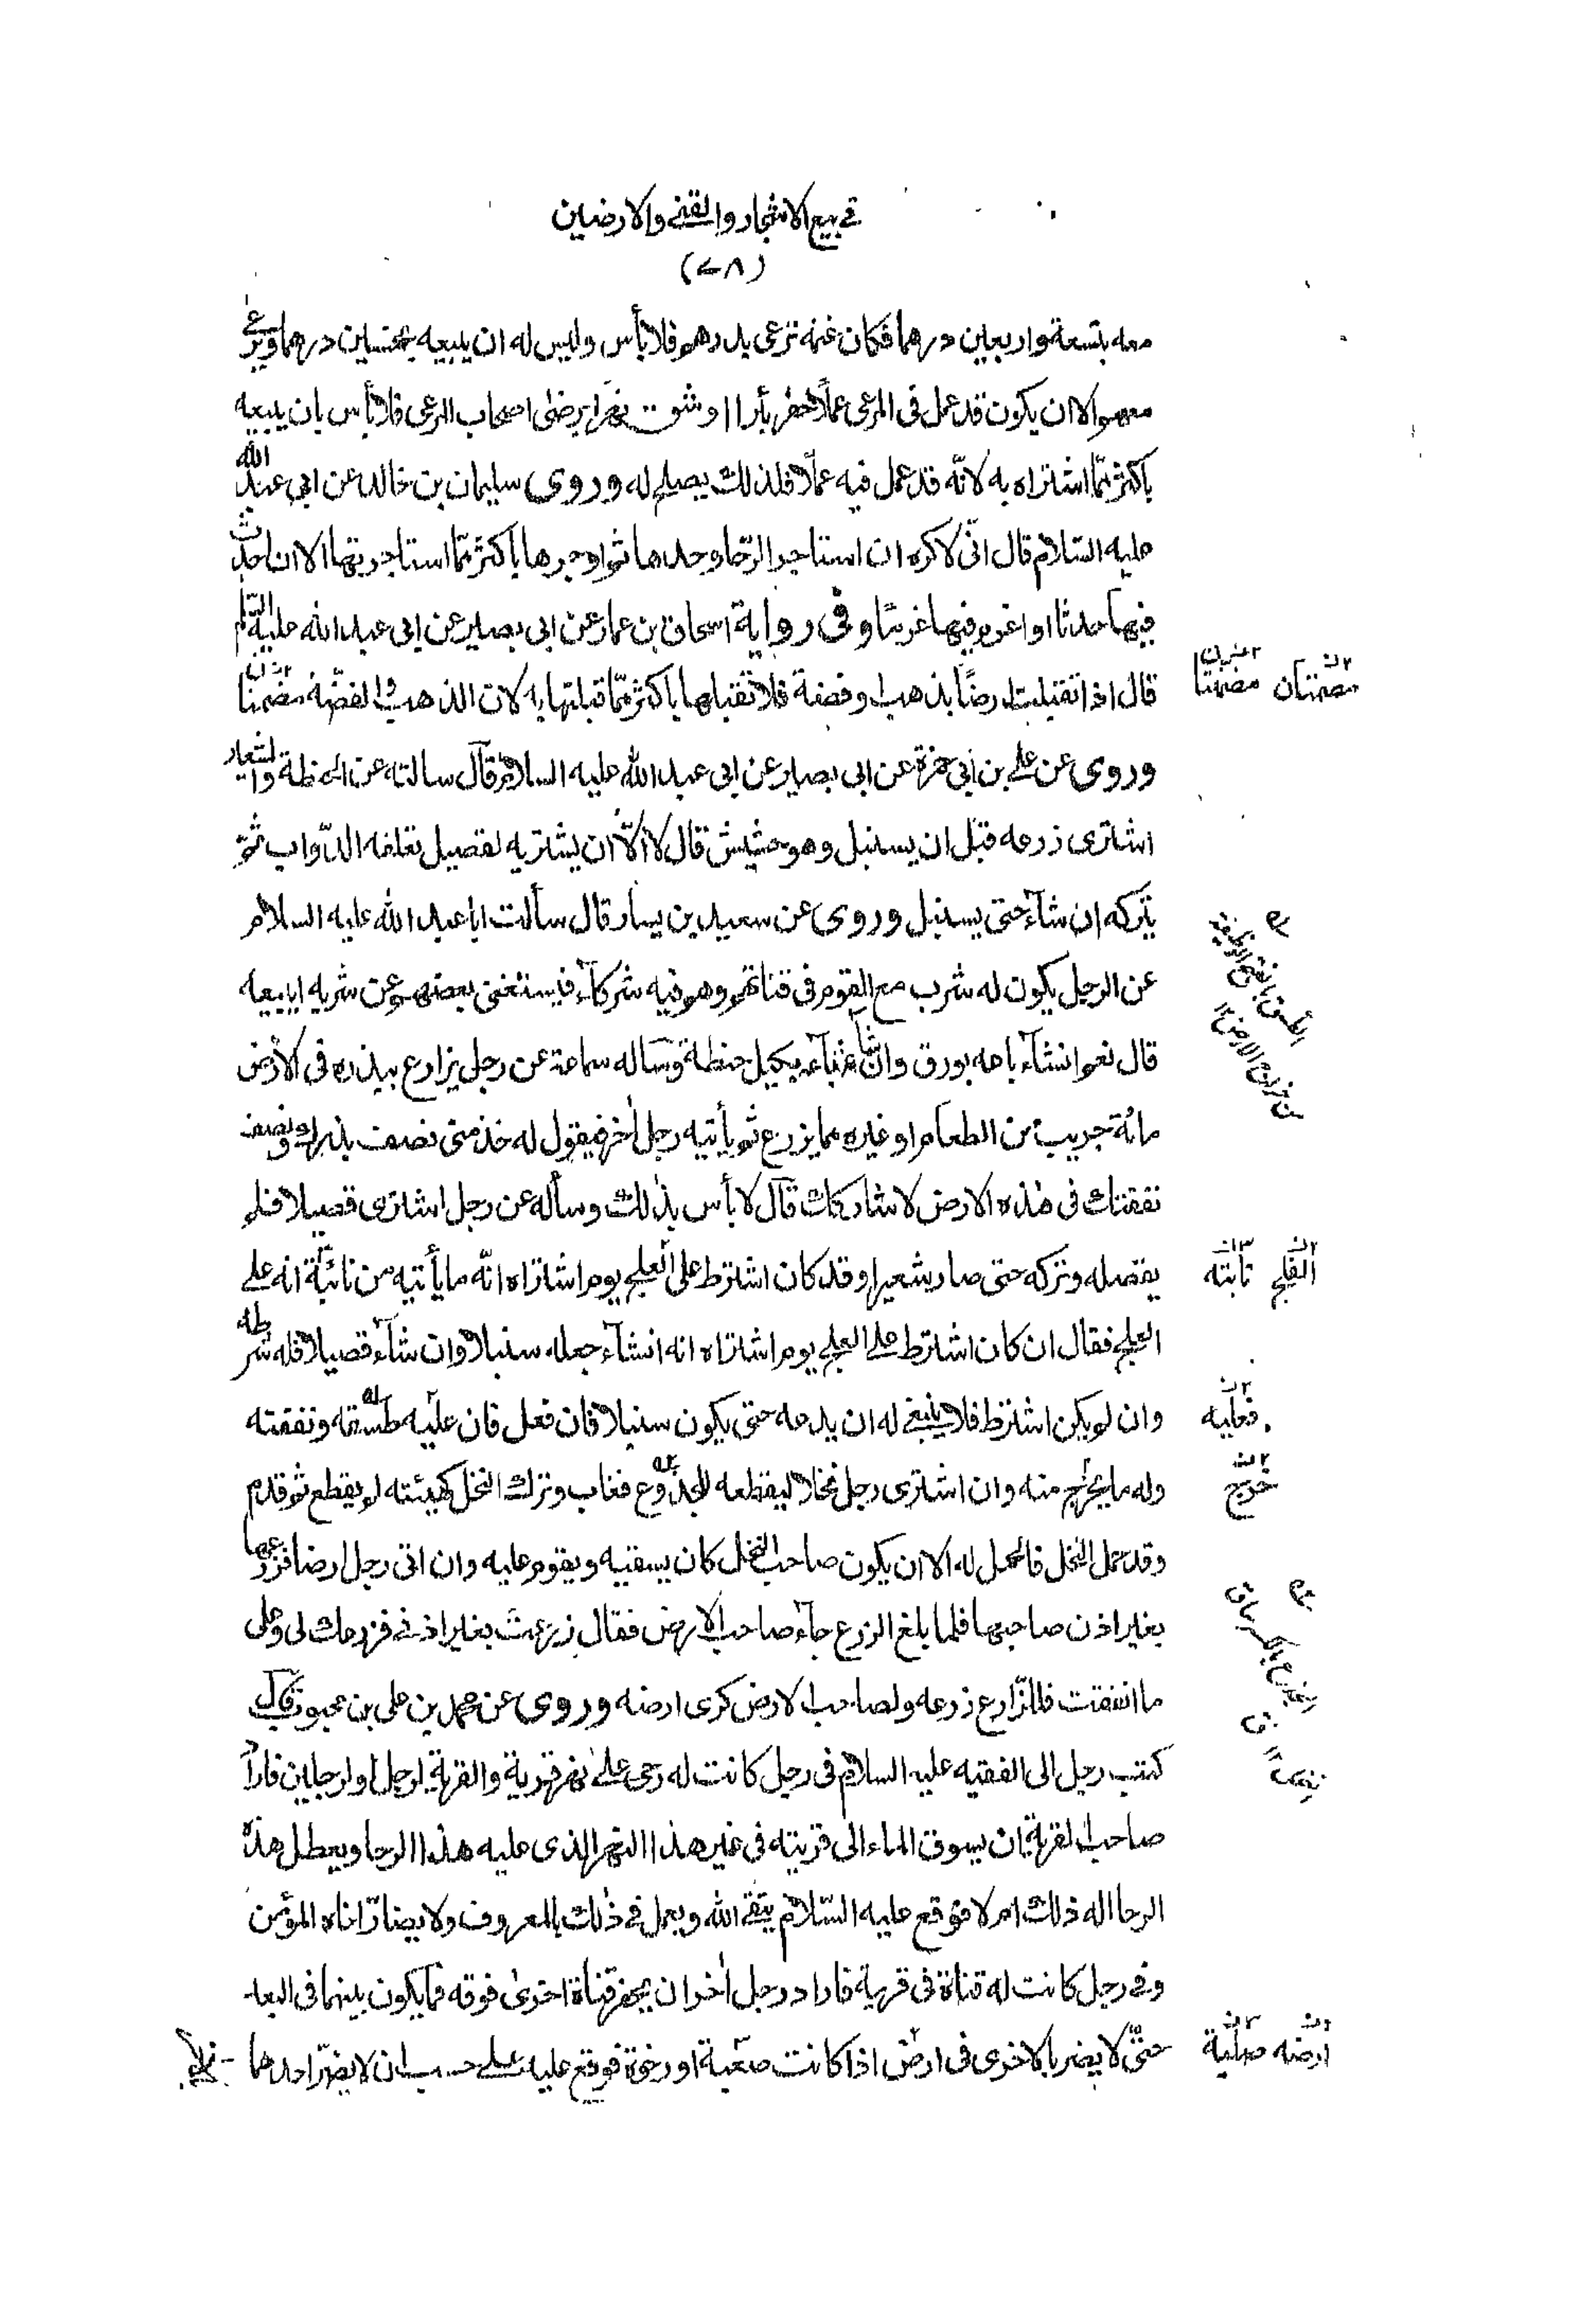 في بيع الاشجار والقنے والارضين
(٧٨)
معه بتسعة واربعين درهما فكان غنمه ترعى بدرهم فلا بأس وليس له ان يبيعه بخمسين درهما ويرعى
معهم الا ان يكون قد عمل فى المرعى عملًا حفر بأرا او شق نهرا برضى اصحاب المرعى فلا بأس بان يبيعه
باكثر ممّا اشتراه به لانّه قد عمل فيه عملًا فلذلك يصلح له وروى سليمان بن خالد عن ابي عبد الله
عليه السّلام قال انّى لاكره ان استاجر الرّحا وحدها ثم اوجرها باكثر ممّا استاجرتها الا ان احدث
فيها حدثا او اغرم فيها غرمًا وفى رواية اسحاق بن عمار عن ابى بصير عن ابى عبد الله عليه السّلم
قال اذا تقبلت ارضًا بذهب او فضة فلا تقبلها باكثر ممّا قبلتها به لان الذهب والفضّة مضمنا
مصمتان مصمتا
وروى عن على بن ابي حمزة عن ابى بصير عن ابى عبد الله عليه السلام قال سالته عن الحنطة والشعير
اشترى زرعه قبل ان يسنبل وهو حشيش قال لا الّا ان يشتريه لقصيل تعلفه الدّواب ثم
يتركه ان شآء حتى يسنبل وروى عن سعيد بن يسار قال سألت ابا عبد الله عليه السلام
عن الرجل يكون له شرب مع القوم فى قناتهم وهو فيه شركآء فيستغنى بعضهم عن شربه ايبيعه
قال نعم انشآء باعه بورق وان شآء باعه بكيل حنطة وساله سماعة عن رجل يزارع ببذره فى الارض
مائة جريب من الطعام او غيره مما يزرع ثم يأتيه رجل اخر فيقول له خذ منى نصف بذرك ونصف
نفقتك فى هذه الارض لاشاركك قال لا بأس بذلك وسأله عن رجل اشترى قصيلا فلم
يقصله وتركه حتى صار شعيرا وقد كان اشترط على العلج يوم اشتراه انّه ما يأتيه من نائبة انه على
الفلج نابته
العلج فقال ان كان اشترط على العلج يوم اشتراه انه انشآء جعله سنبلا وان شآء قصيلا فله شرطه
وان لم يكن اشترط فلا ينبغى له ان يدعه حتى يكون سنبلا فان فعل فان عليه طسقه ونفقته
فعليه
وله ما يخرج منه وان اشترى رجل نخلا ليقطعه للجذوع فغاب وترك النخل كهيئته لم يقطع ثم قدم
خرج
وقد حمل النخل فالحمل له الا ان يكون صاحب النخل كان يسقيه ويقوم عليه وان اتى رجل ارضا فزرعها
بغير اذن صاحبها فلما بلغ الزرع جآء صاحب الارض فقال زرعت بغير اذنى فزرعك لى وعلى
ما انفقت فللزّارع زرعه ولصاحب الارض كرى ارضه وروى عن محمد بن على بن محبوب قال
كتب رجل الى الفقيه عليه السلام فى رجل كانت له رحى على نهر قرية والقرية لرجل او لرجلين فاراد
صاحب القرية ان يسوق الماء الى قريته فى غير هذا النهر الذى عليه هذا الرحا ويعطل هذه
الرحا اله ذلك ام لا فوقع عليه السّلام يتقى الله ويعمل فى ذلك بالمعروف ولا يضارّ اخاه المؤمن
وفى رجل كانت له قناة فى قرية فاراد رجل اخر ان يحفر قناة اخرى فوقه فما يكون بينهما فى البعد
حتّى لا يضر بالاخرى فى ارض اذا كانت صعبة او رخوة فوقع عليه على حسب ان لا يضرّ احدهما
ارضه صلبة